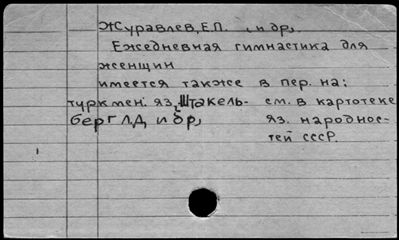 Журавлев, Е.П. , и др,
Ежедневная гимнастика для
женщин
имеется также в пер. на:
туркмен. яз, Штакель- см. в картотеке
берг Л.Д, и др, яз. народнос-
тей СССР.